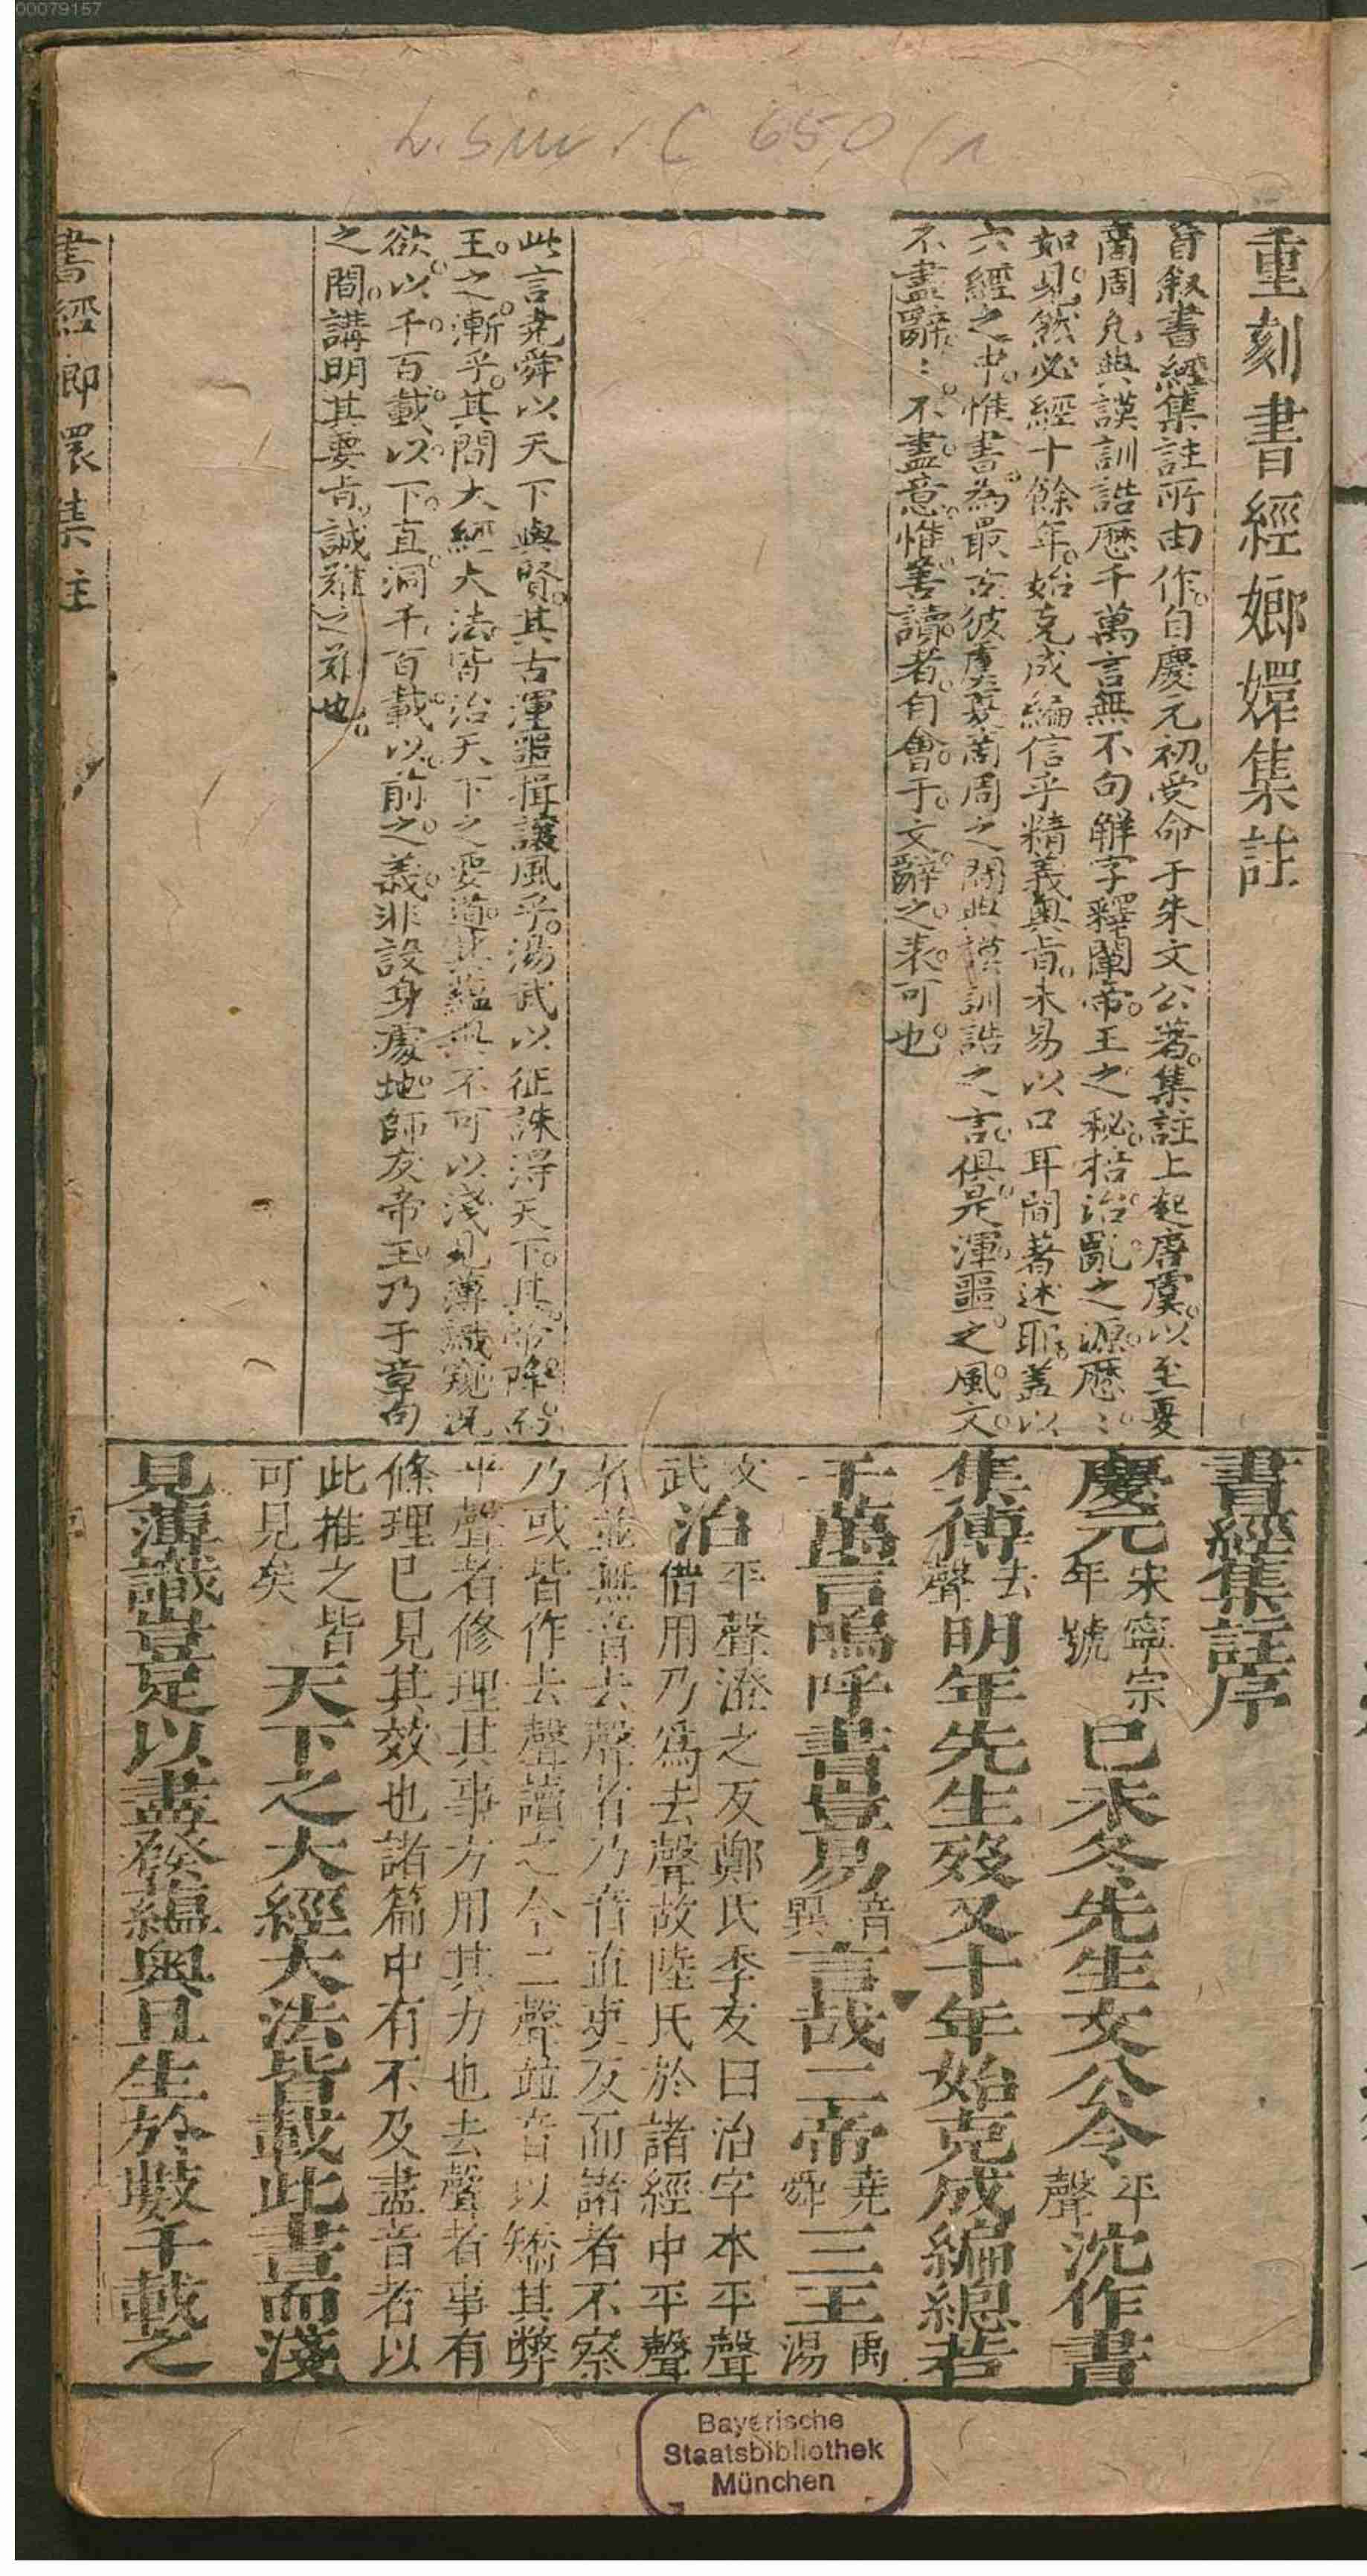 00079157
L. Sin. C 650/1
重刻書經嫏嬛集註
首叙書經集註所由作自慶元初受命于朱文公著集註上起唐虞以至夏
商周凡典謨訓誥歷千萬言無不句觧字釋闡帝王之秘梏治亂之源歷:
如見然必經十餘年始克成編信乎精義奧㫖未易以口耳間著述耶盖以
六經之中惟書為最古彼虞夏商周之間典謨訓誥之言俱是渾噩之風文
不盡辭:不盡意惟善讀者自會于文辭之表可也
此言尭舜以天下與賢其古渾噩揖讓風乎湯武以征誅淂天下其帝降
王之漸乎其間大經大法皆治天下之要道其蘊奧不可以淺見薄識窺况
欲以千百載以下直洞千百載以前之義非設身處地師友帝王乃于章句
之間講明其要㫖誠難之难也
書經嫏嬛集註
書經集註序
慶元宋寧宗年號巳未冬先生文公令平聲沈作書
集傳去聲明年先生歿又十年始克成編緫若
千萬言嗚呼書豈易音異言哉二帝堯舜三王禹湯
文武治平聲澄之反鄭氏季友曰治字本平聲借用乃爲去聲故陸氏於諸經中平聲
者並無音去聲者乃音直吏反而諸者不察乃或皆作去聲讀之今二聲並音以矯其弊
平聲者修理其事方用其力也去聲者事有條理巳見其效也諸篇中有不及盡音者以
此推之皆可見矣天下之大經大法皆載此書而淺
見薄識豈足以盡發蘊奥且生於數千載之
Bayerische
Staatsbibliothek
München